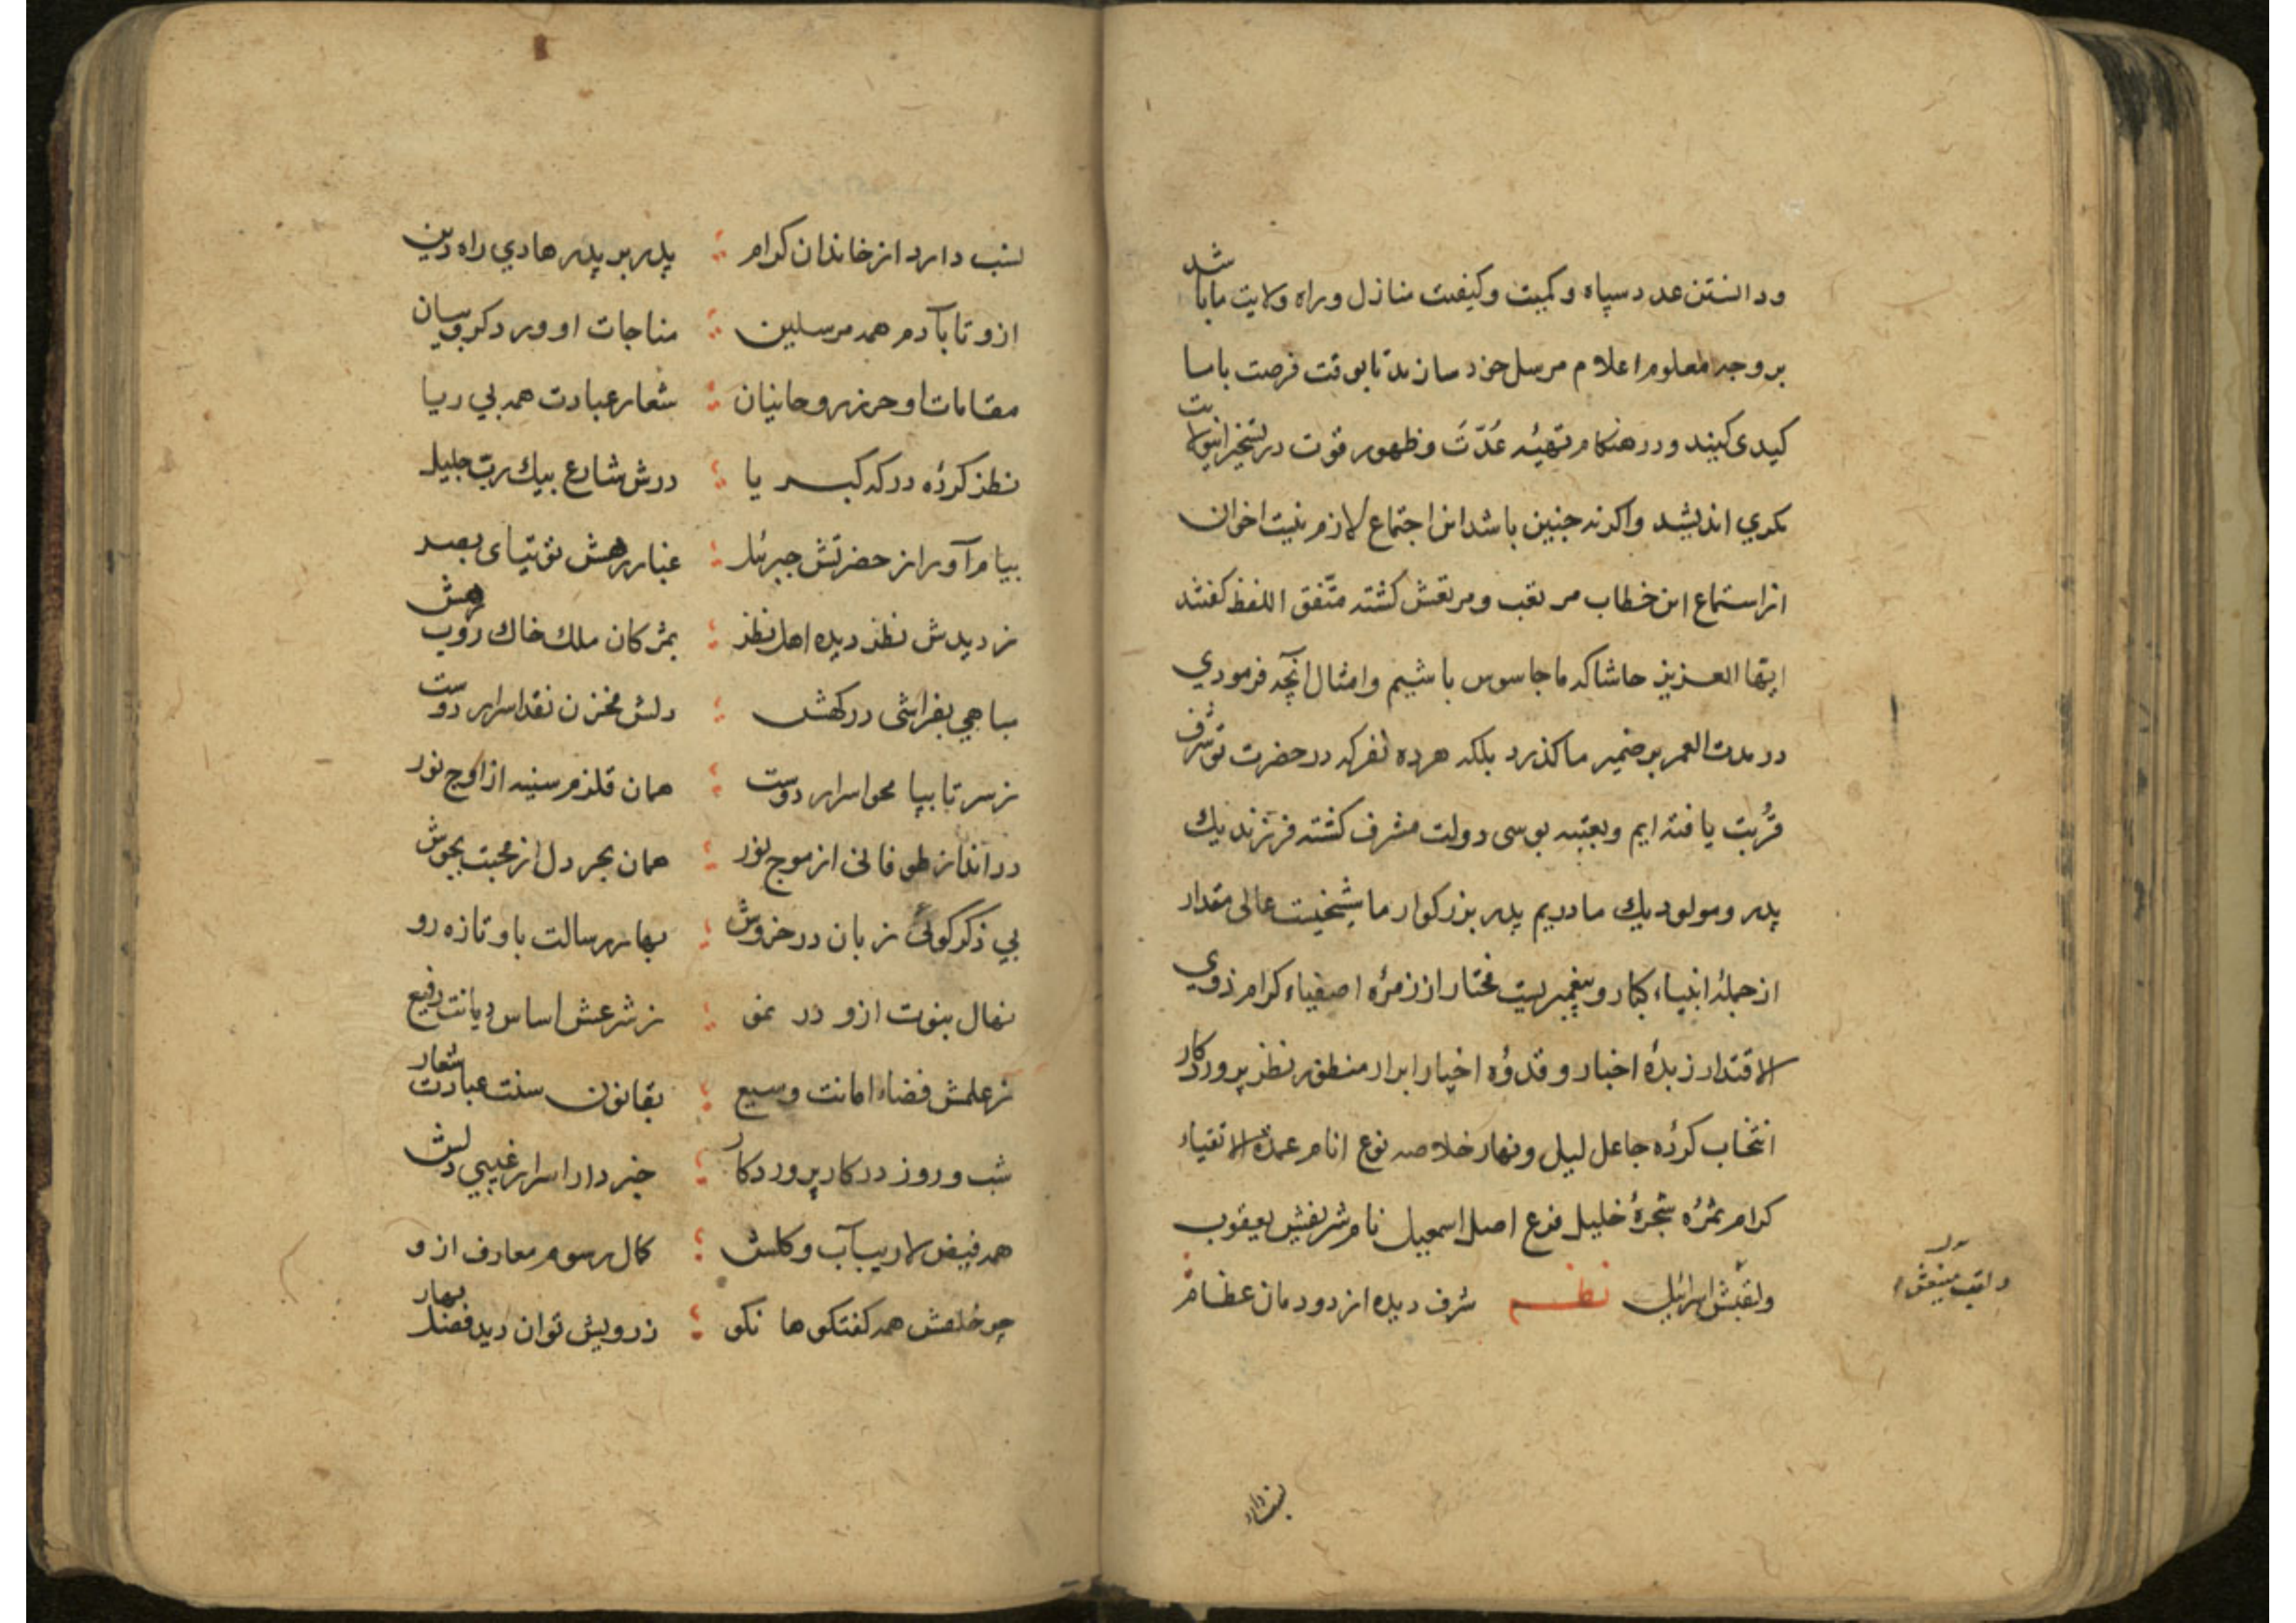 ودانستن عدد سپاه و کمیت و کیفیت منازل و راه ولایت ما باشد
بر وجه معلوم اعلام مرسل خود سازند تا بوقت فرصت با ما
کیدی کیند و در هنکام تهیئه عُدّتَ و ظهور قوت در تسخیر این ولایت
مکری اندیشد و اکر نه جنین باشد این اجتماع لازم نیست اخوان
از استماع این خطاب مرتعب و مرتعش کشته متّفق اللفظ کفتند
ایّها العزیز حاشا که ما جاسوس باشیم و امثال آنچه فرمودی
در مدت العمر بر ضمیر ما کذرد بلکه هر ده نفر که در حضرت تو شرف
قُربت یافته ایم و بعتبه بوسی دولت مشرف کشته فرزند یك
پدر و مولود یك مادریم پدر بزرکوار ما شیخیست عالی مقدار
از جملهٔ انبیاء کبار و پیغمبریست مختار از زمرهٔ اصفیاء کرام ذوی
الاقتدار زبدهٔ اخبار و قدوهٔ اخیار ابرار منظور نظر پروردکار
انتخاب کردهٔ جاعل لیل و نهار خلاصه نوع انام عمدة الاتقیاء
کرام ثمرهٔ شجرهٔ خلیل فرع اصل اسمعیل نام شریفش یعقوب
ولقبش اسرائیل نظم شرف دیده از دودمان عظام
نسب دارد
نسب دارد از خاندان کرام ؛ پدر بر پدر هادی راه دین
ازو تا بآدم همه مرسلین ؛ مناجات او ورد کروبیان
مقامات او حرز روحانیان ؛ شعار عبادت همه بی ریا
نظر کردهٔ درکه کبریا ؛ درش شارع بیك رب جلیل
پیام آور از حضرتش جبرئل ؛ غبار رهش توتیای بصر
ز دیدش نظر دیده اهل نظر ؛ بمژکان ملك خاك روب رهش
مباهی بفراشی درکهش ؛ دلش مخزن نقد اسرار دوست
ز سر تا بپا محو اسرار دوست ؛ همان قلزم سینه از اوج نور
در انداز طوفانی از موج نور ؛ همان بحر دل از محبت بجوش
بی ذکر کوئی زبان در خروش ؛ بهار رسالت باو تازه رو
نهال نبوت ازو در نمو ؛ ز شرعش اساس دیانت رفیع
ز علمش فضاء امانت وسیع ؛ بقانون سنت عبادت شعار
شب و روز در کار پروردکار ؛ خبردار اسرار غیبی دلش
همه فیض لاریب آب و کلش ؛ کمال رسوم معارف ازو
چو خلقش همه کفتکوها نکو ؛ ز رویش توان دید فصل بهار